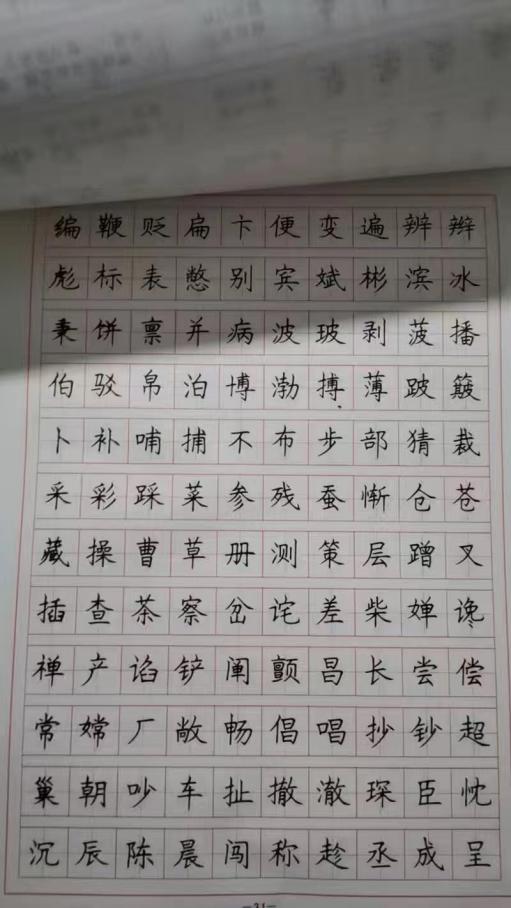 编鞭贬扁卞便变遍辨辫
彪标表憋别宾斌彬滨冰
秉饼禀并病波玻剥菠播
伯驳帛泊博渤搏薄跛簸
卜补哺捕不布步部猜裁
采彩踩菜参残蚕惭仓苍
藏操曹草册测策层蹭叉
插查茶察岔诧差柴婵谗
禅产谄铲阐颤昌长尝偿
常嫦厂敞畅倡唱抄钞超
巢朝吵车扯撤澈琛臣忱
沉辰陈晨闯称趁丞成呈
—31—